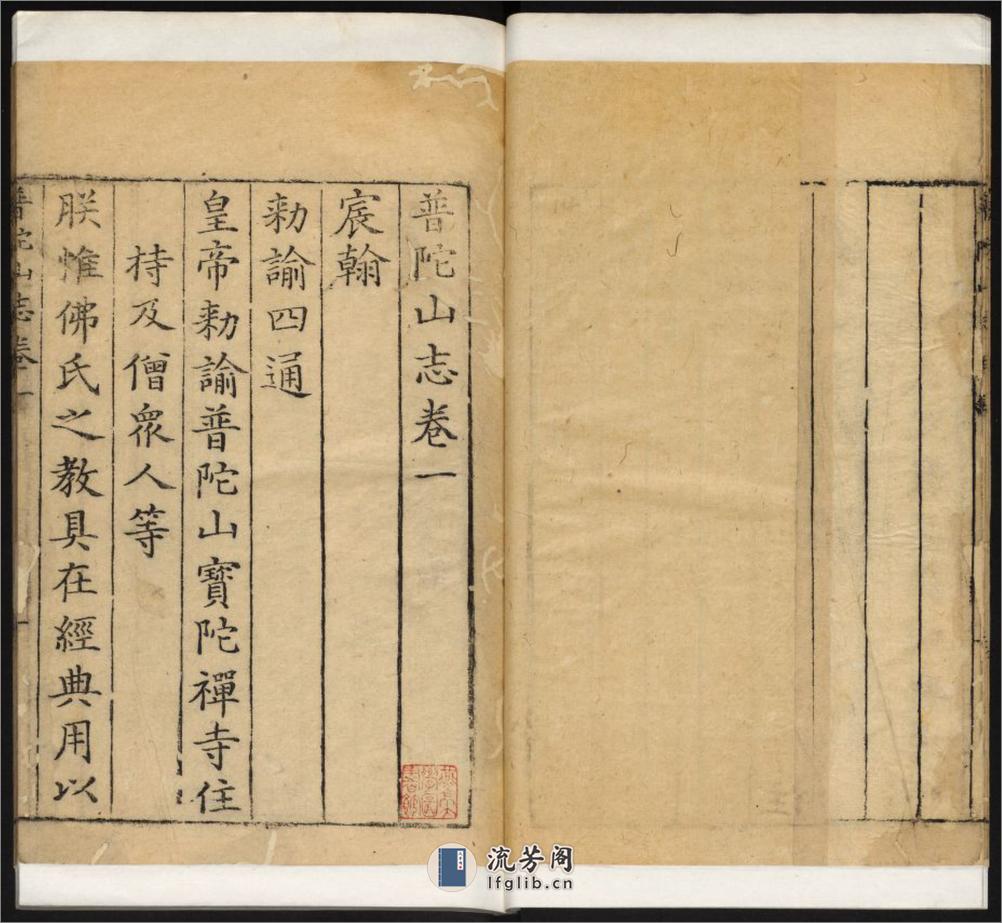 普陀山志卷一
宸翰
勑諭四通
皇帝勑諭普陀山寶陀禪寺住
持及僧衆人等
朕惟佛氏之教具在經典用以
普陀山志卷一
流芳阁
lfglib.cn